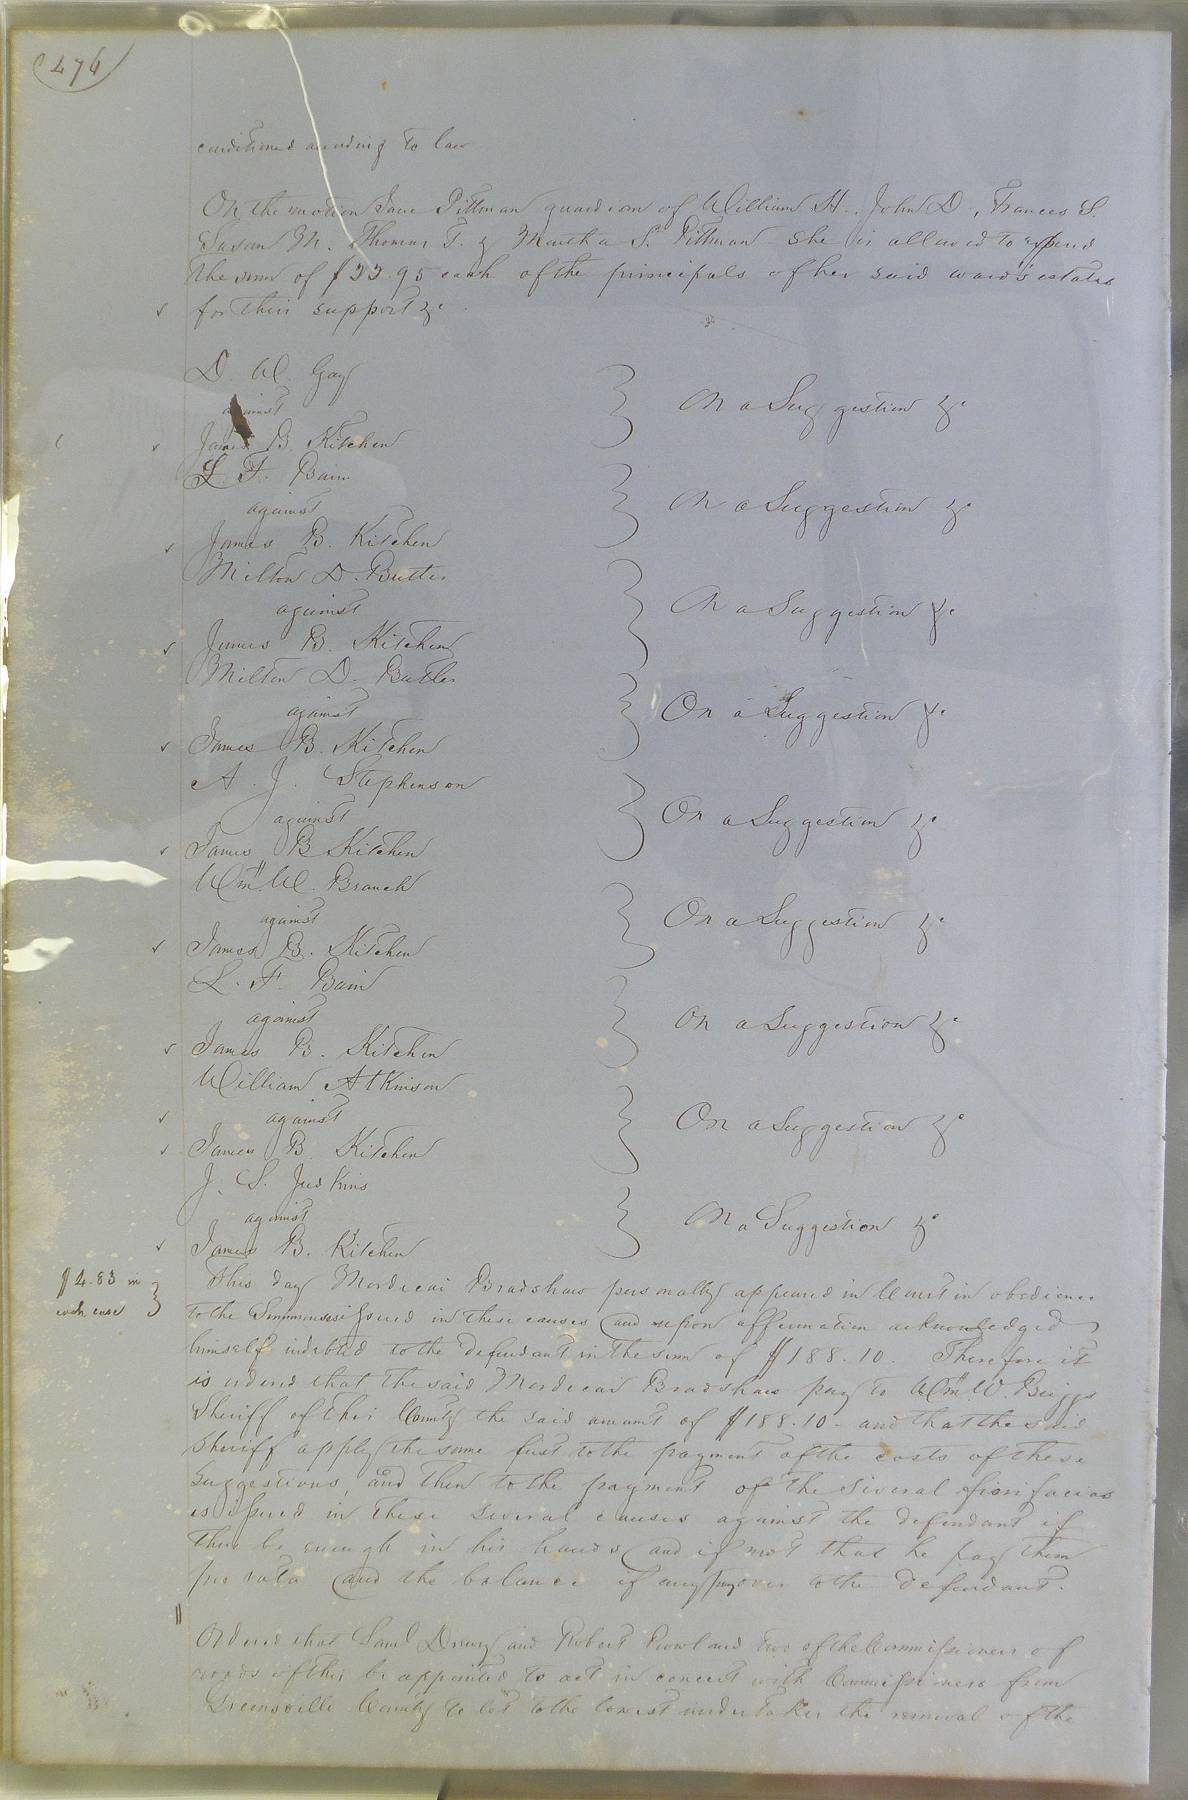 476
conditioned according to law
On the motion Jane Pittman guardian of William H., John D., Frances S.
Susan M. Thomas T. & Martha S. Pittman she is allowed to expend
the sum of $33.95 each of the principals of her said ward's estates
for their support &c.
D. W. Gay
against
On a Suggestion &c
James B Kitchen
L. F. Bain
against
On a Suggestion &c
James B. Kitchen
Milton D. Butler
against
On a Suggestion &c
James B. Kitchen
Milton D. Butler
against
On a Suggestion &c
James B. Kitchen
A. J. Stephenson
against
On a Suggestion &c
James B Kitchen
Wm. W. Branch
against
On a Suggestion &c
James B. Kitchen
L. F. Bain
against
On a Suggestion &c
James B. Kitchen
William Atkinson
against
On a Suggestion &c
James B. Kitchen
J. S. Judkins
against
On a Suggestion &c
James B. Kitchen
$4.83 in
each case
This day Mordecai Bradshaw personally appeared in Court in obedience
to the Summonses issued in these causes and upon affirmation acknowledged
himself indebted to the defendant in the sum of $188.10. Therefore it
is ordered that the said Mordecai Bradshaw pay to Wm. W. Briggs
Sheriff of this County the said amount of $188.10 - and that the said
Sheriff apply the same first to the payment of the costs of these
Suggestions, and then to the payment of the several fieri facias
es issued in these several causes against the defendant if
there be enough in his hands and if not that he pay them
pro rata and the balance if any pay over to the defendant.
Ordered that Saml Drewry and Robert Rowland two of the Commissioners of
roads of this be appointed to act in concert with Commissioners from
Greensville County to let to the lowest undertaker the removal of the